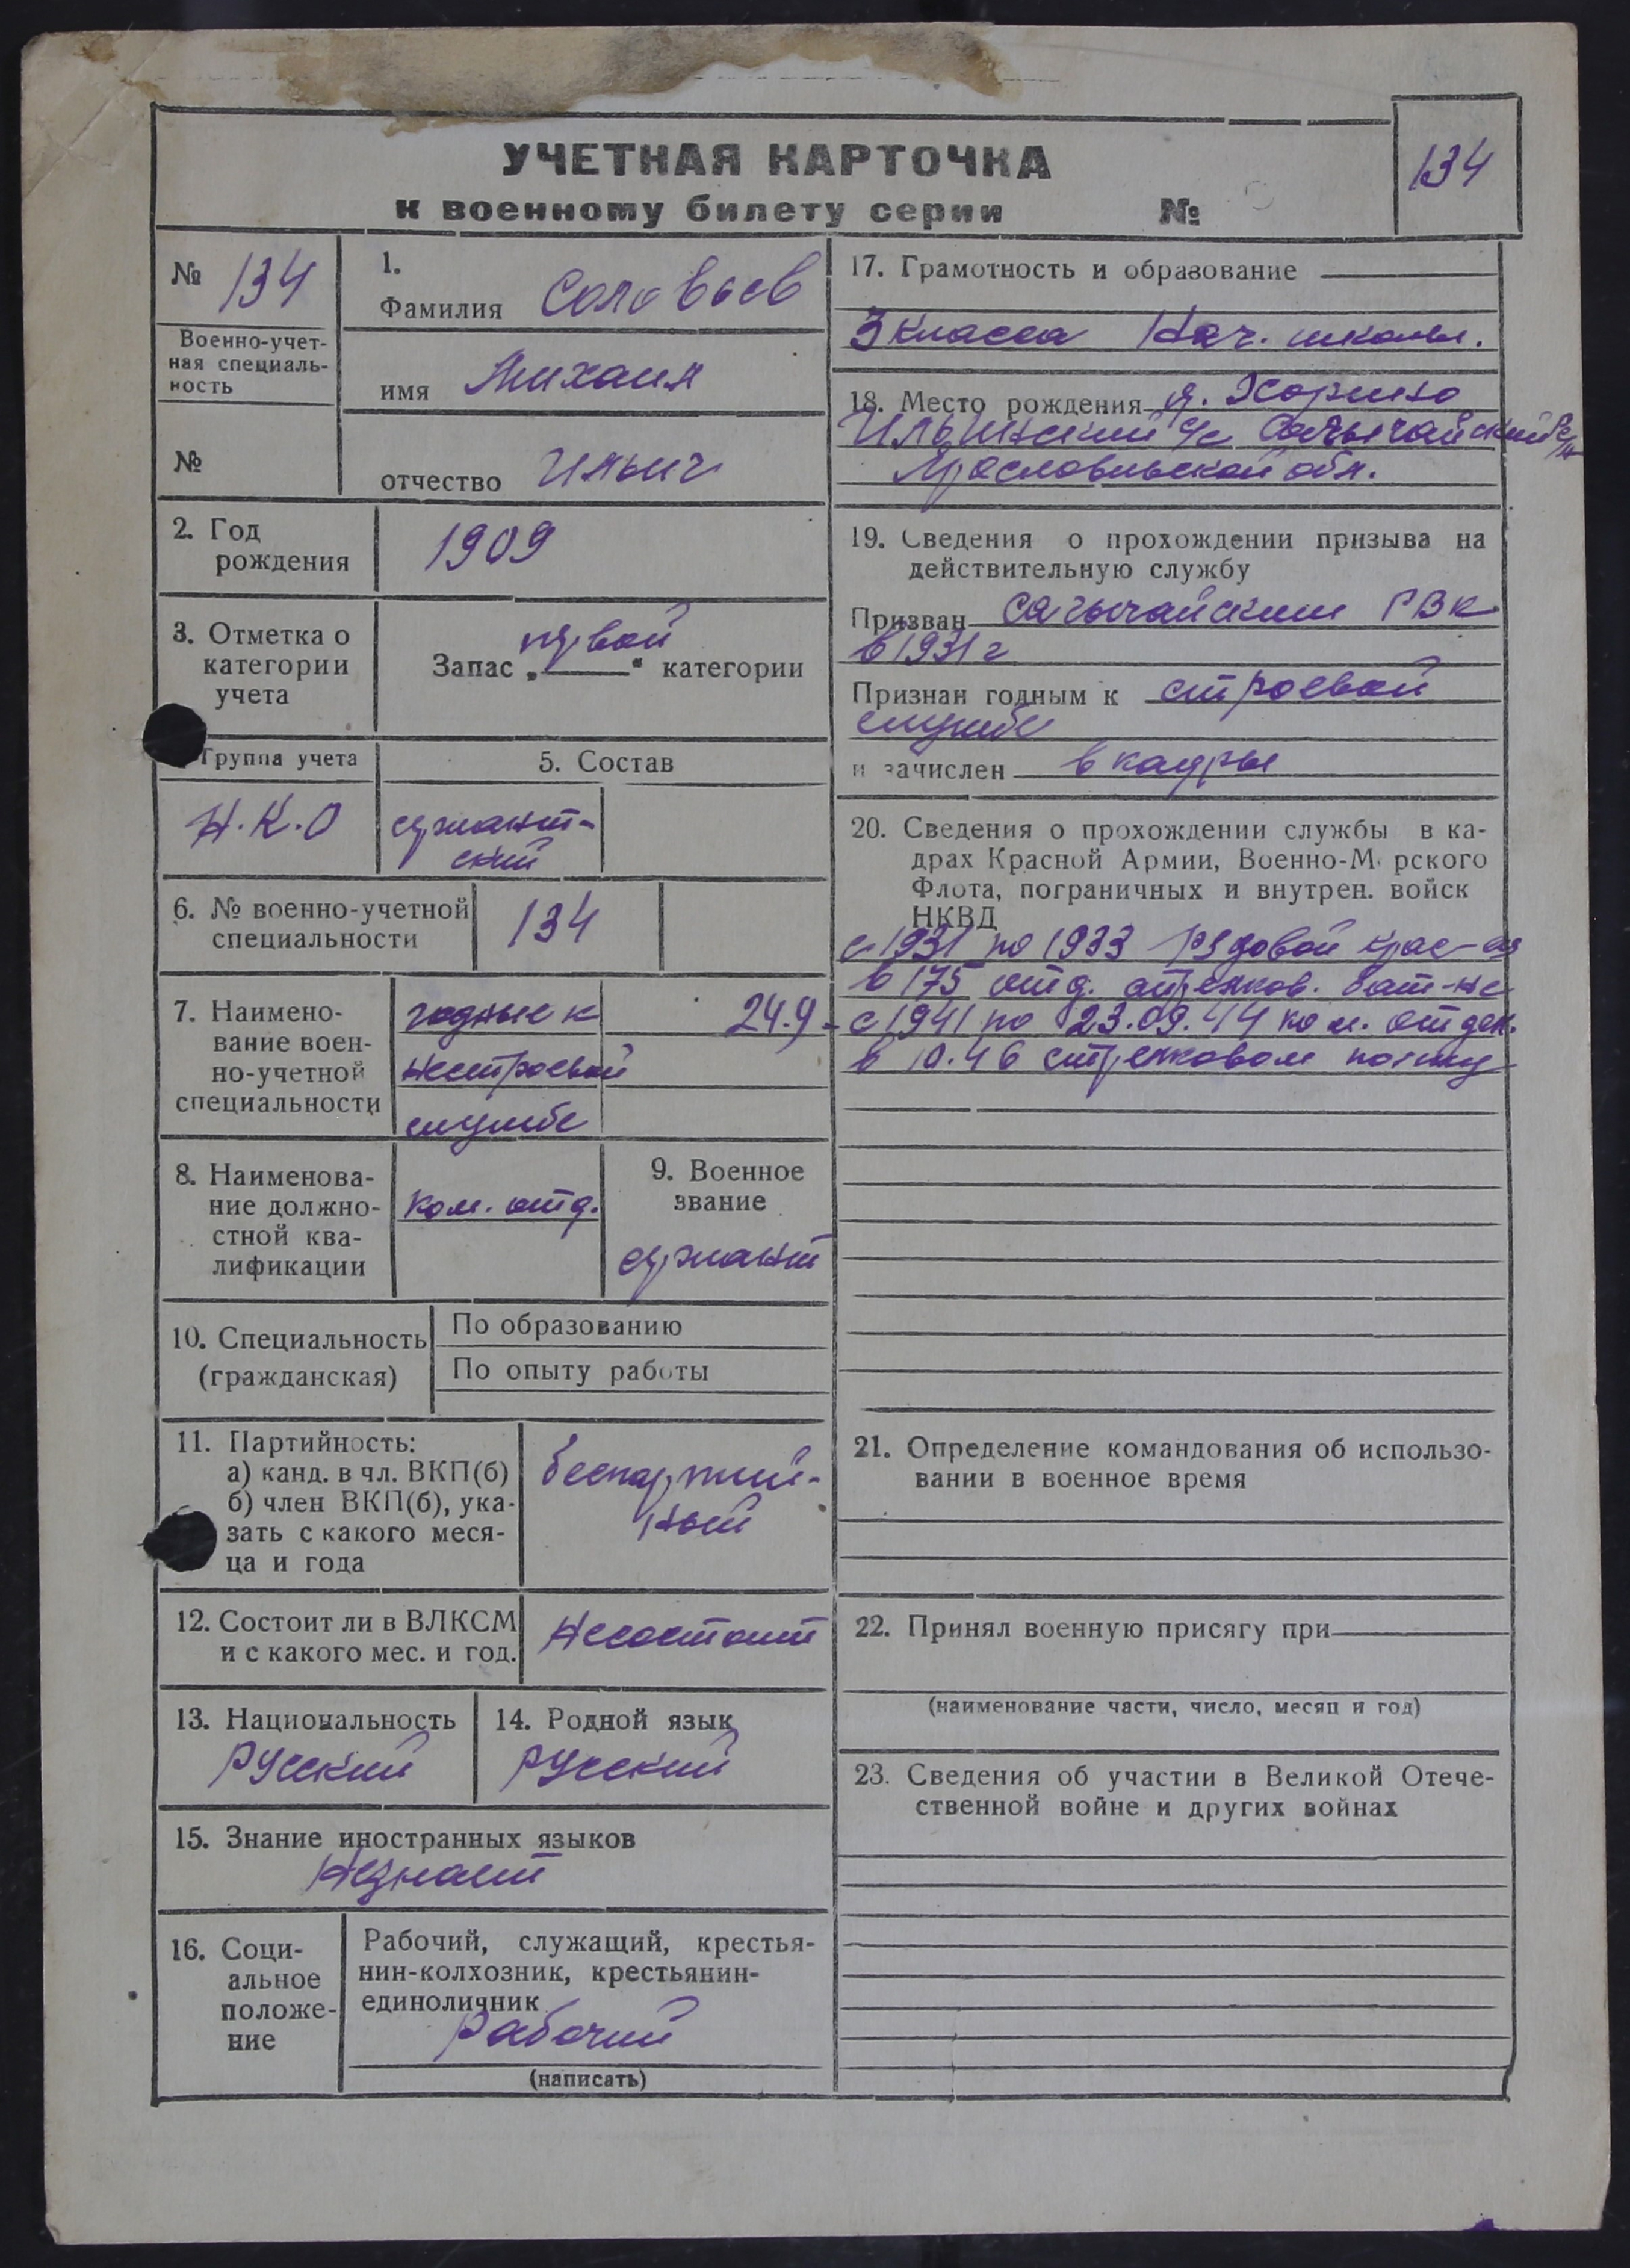 УЧЕТНАЯ КАРТОЧКА
134
к военному билету серии №
№ 134
Военно-учет-
ная специаль-
ность
№
1.
Фамилия Соловьев
имя Михаил
отчество Ильич
2. Год
рождения
1909
3. Отметка о
категории
учета
первой
Запас „ “ категории
Группа учета
Н.К.О
5. Состав
сержант-
ский
6. № военно-учетной
специальности
134
7. Наимено-
вание воен-
но-учетной
специальности
годные к
нестроевой
службе
24.9-
8. Наименова-
ние должно-
стной ква-
лификации
Ком. отд.
9. Военное
звание
сержант
10. Специальность
(гражданская)
По образованию
По опыту работы
11. Партийность:
а) канд. в чл. ВКП(б)
б) член ВКП(б), ука-
зать с какого меся-
ца и года
беспартий-
ный
12. Состоит ли в ВЛКСМ
и с какого мес. и год.
Несостоит
13. Национальность
Русский
14. Родной язык
Русский
15. Знание иностранных языков
Незнает
16. Соци-
альное
положе-
ние
Рабочий, служащий, крестья-
нин-колхозник, крестьянин-
единоличник
Рабочий
(написать)
17. Грамотность и образование
3 класса Нач. школы.
18. Место рождения д.
Ильинский с/с
Ярославльской обл.
19. Сведения о прохождении призыва на
действительную службу
Призван РВК
в 1931 г
Признан годным к строевой
службе
и зачислен в кадры
20. Сведения о прохождении службы в ка-
драх Красной Армии, Военно-Морского
Флота, пограничных и внутрен. войск
НКВД
с 1931 по 1933 рядовой
в 175 отд. стрелков. бат-не
с 1941 по 23.09.44 ком. отдел.
в 10.46 стрелковом полку
21. Определение командования об использо-
вании в военное время
22. Принял военную присягу при
(наименование части, число, месяц и год)
23. Сведения об участии в Великой Отече-
ственной войне и других войнах